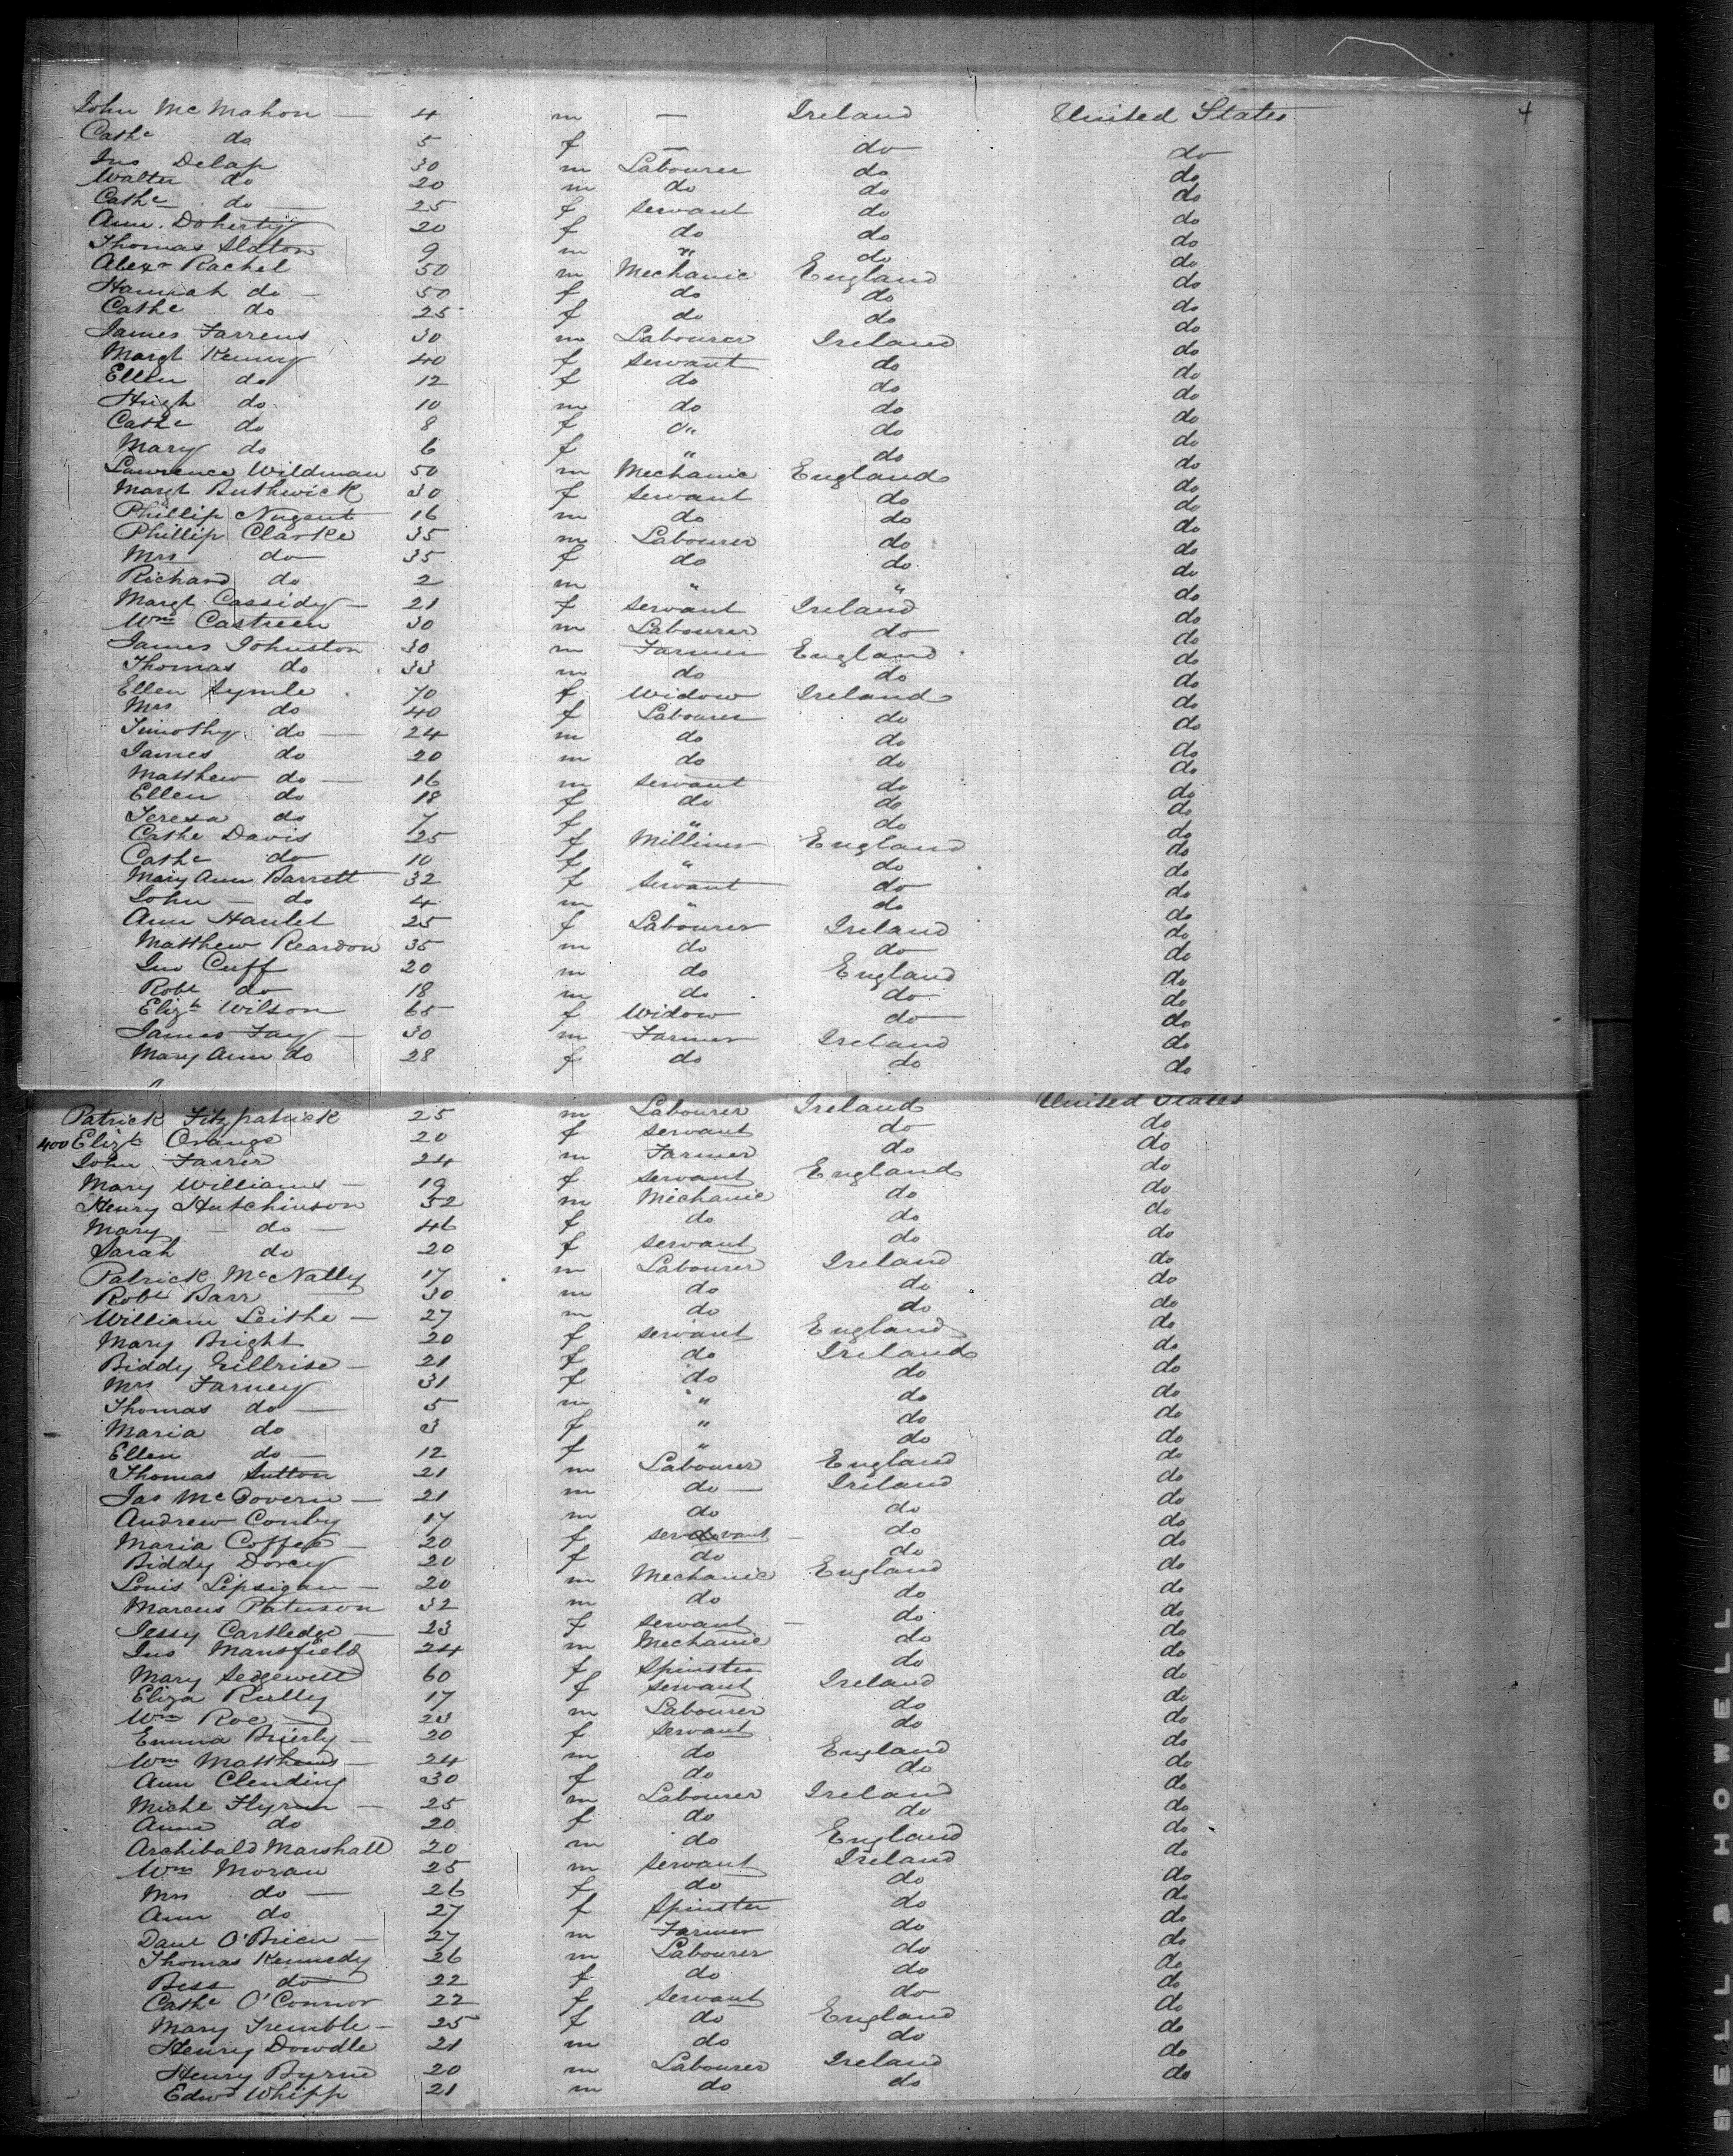 John McMahon — 4 m — Ireland United States 4
Cathe do 5 f — do do
Jno Delap 30 m Labourer do do
Walter do 20 m do do do
Cathe do — 25 f Servant do do
Ann Doherty 20 f do do do
Thomas Slaton 9 m " do do
Alexr Rachel 50 m Mechanic England do
Hannah do — 50 f do do do
Cathe do 25 f do do do
James Farrens 30 m Labourer Ireland do
Margt Kenny 40 f Servant do do
Ellen do 12 f do do do
Hugh do 10 m do do do
Cathe do 8 f " do do
Mary do 6 f " do do
Lawrence Wildman 50 m Mechanic England do
Margt Buthwick 30 f Servant do do
Phillip Nugent 16 m do do do
Phillip Clarke 35 m Labourer do do
Mrs do 35 f do do do
Richard do 2 m " " do
Margt Cassidy — 21 f Servant Ireland do
Wm Castreen 30 m Labourer do do
James Johnston 30 m Farmer England do
Thomas do 33 m do do do
Ellen Symle 70 f Widow Ireland do
Mrs do 40 f Labourer do do
Timothy do — 24 m do do do
James do 20 m do do do
Matthew do — 16 m Servant do do
Ellen do 18 f do do do
Teresa do 7 f " do do
Cathe Davis 25 f Milliner England do
Cathe do 10 f " do do
Mary Ann Barrett 32 f Servant do do
John — do 4 m " do do
Ann Hanlet 25 f Labourer Ireland do
Matthew Reardon 35 m do do do
Jno Cuff 20 m do England do
Robt do 18 m do do do
Elizh Wilson 65 f Widow do do
James Fay — 30 m Farmer Ireland do
Mary Ann do 28 f do do do
Patrick Fitzpatrick 25 m Labourer Ireland United States
400 Elizt Orange 20 f Servant do do
John Farrir 24 m Farmer do do
Mary Williams — 19 f Servant England do
Henry Hutchinson 52 m Mechanic do do
Mary — do — 46 f do do do
Sarah do 20 f Servant do do
Patrick McNally 17 m Labourer Ireland do
Robt Barr 30 m do do do
William Leithe — 27 m do do do
Mary Bright 20 f Servant England do
Biddy Gillrise — 21 f do Ireland do
Mrs Farney 31 f do do do
Thomas do — 5 m " do do
Maria do 3 f " do do
Ellen do — 12 f " do do
Thomas Sutton 21 m Labourer England do
Jas McGovern — 21 m do — Ireland do
Andrew Conby 17 m do do do
Maria Coffee — 20 f Servant — do do
Biddy Dorcey 20 f do do do
Louis Lipsigan — 20 m Mechanic England do
Marcus Paterson 32 m do do do
Jessy Cartledge — 23 f Servant — do do
Jno Mansfield 24 m Mechanic do do
Mary Sedgewell 60 f Spinster do do
Eliza Reilly 17 f Servant Ireland do
Wm Roe — 23 m Labourer do do
Emma Brierly — 20 f Servant do do
Wm Matthews — 24 m do England do
Ann Clending 30 f do do do
Michl Flynn — 25 m Labourer Ireland do
Anne do 20 f do do do
Archibald Marshall 20 m do England do
Wm Moran 25 m Servant Ireland do
Mrs do — 26 f do do do
Ann do 27 f Spinster do do
Danl O'Brien — 27 m Farmer do do
Thomas Kennedy 26 m Labourer do do
Bess do 22 f do do do
Cathe O'Connor 22 f Servant do do
Mary Tremble — 25 f do England do
Henry Dowdle 21 m do do do
Henry Byrne 20 m Labourer Ireland do
Edwd Whipp 21 m do do do
BELL & HOWELL